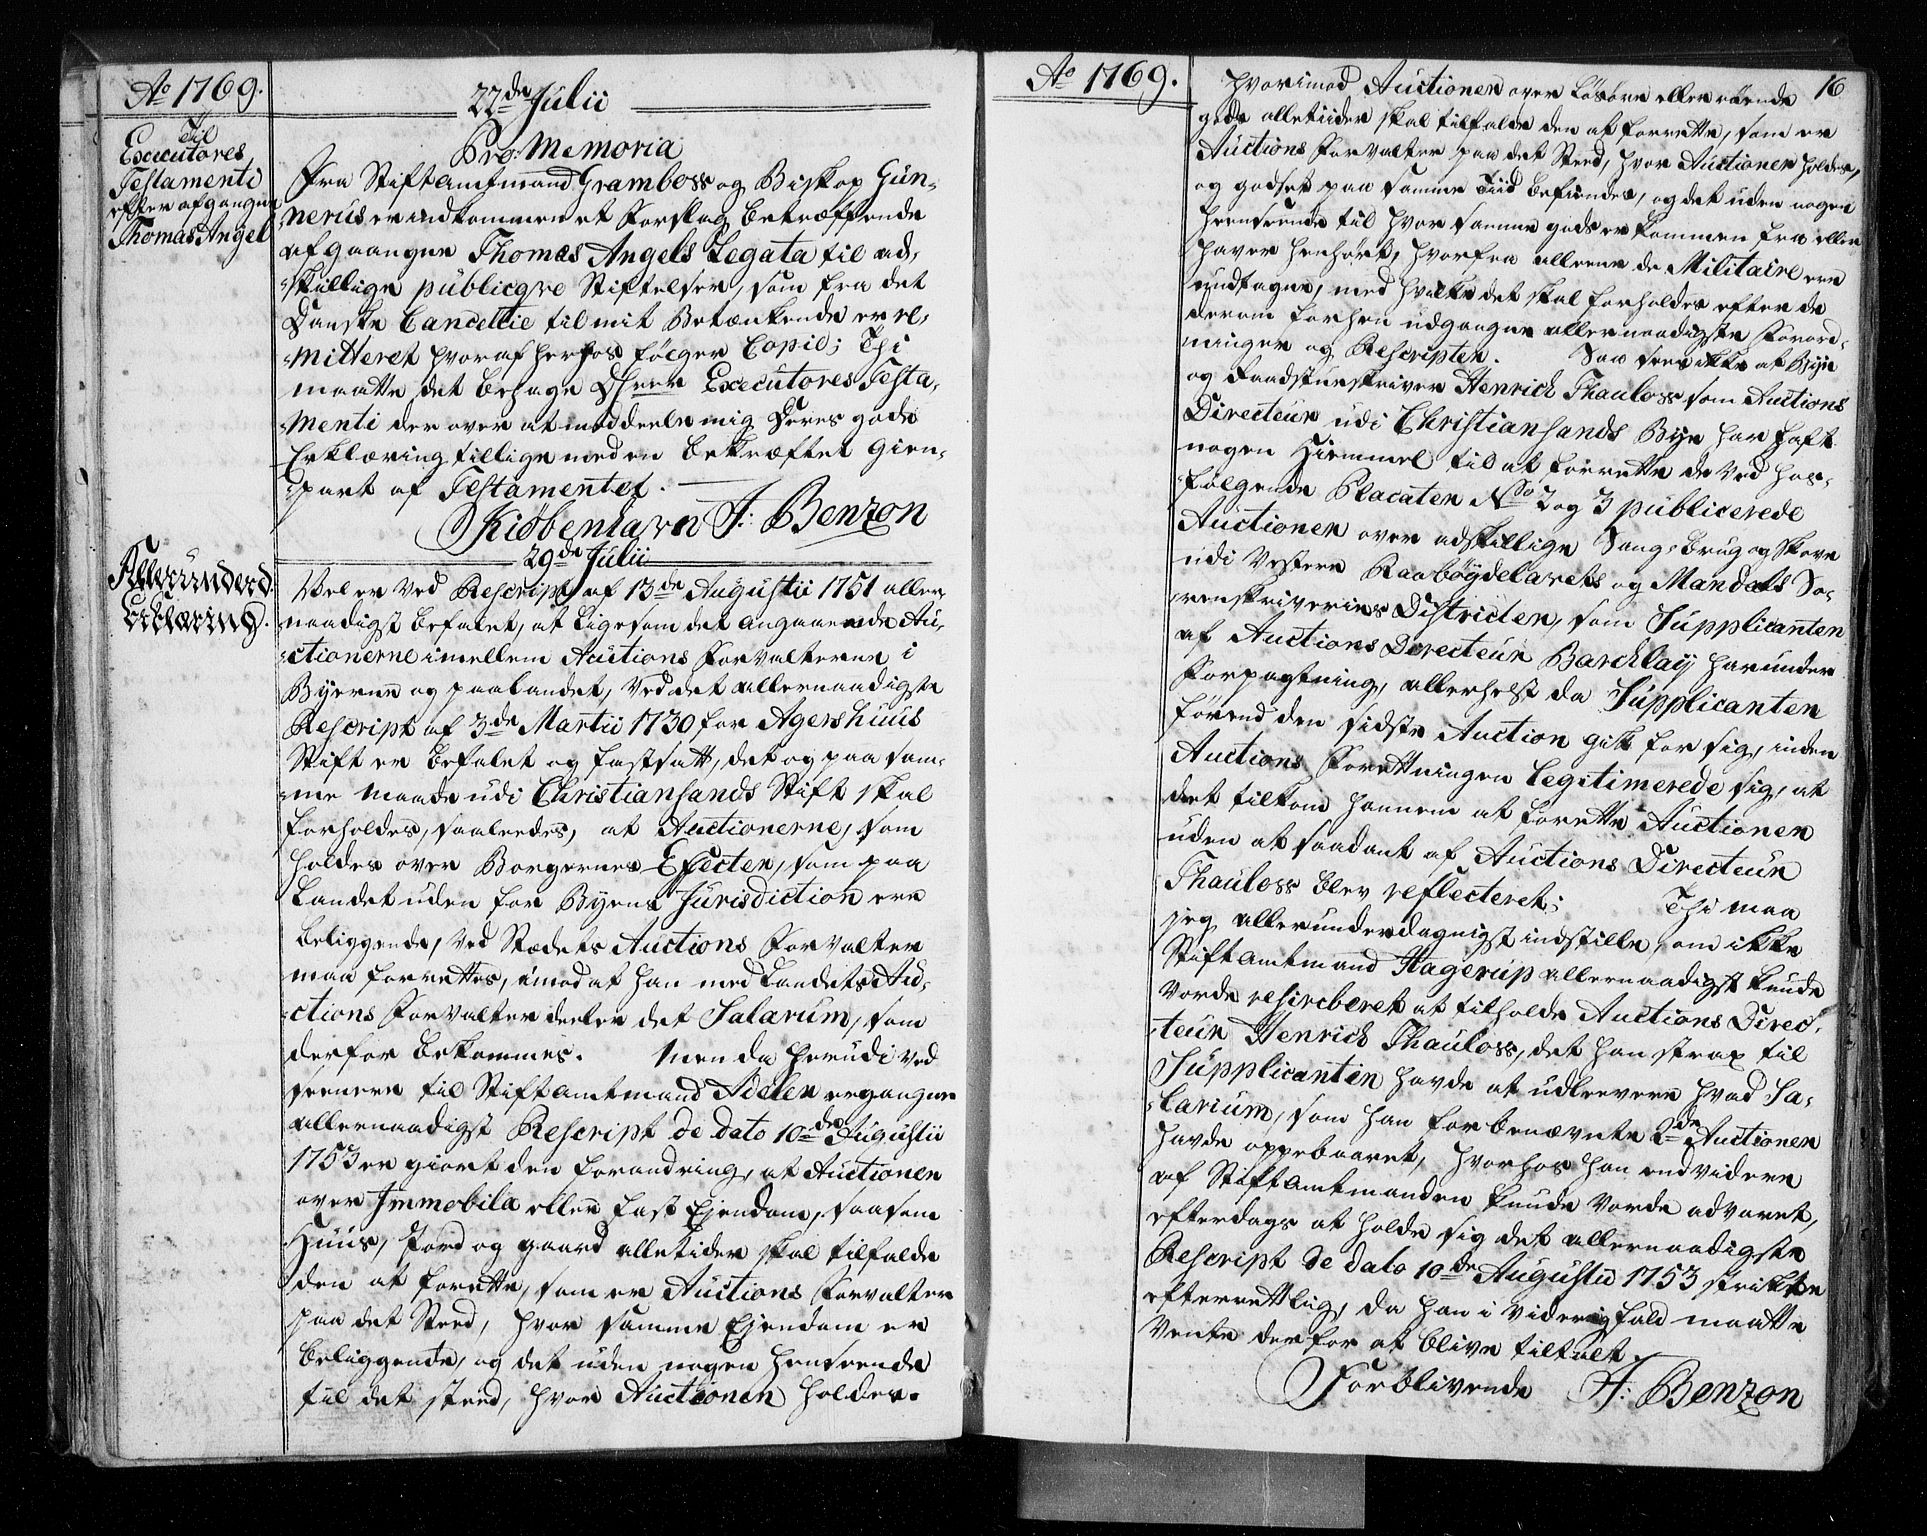 Ao 1769.
22de Julii
Til
Executores
Testamenti
efter afgangne
Thomas Angel
Pro: Memoria
Fra Stiftamtmand Grambow og Biskop Gun-
nerus er indkommen et Forslag betræffende
afgaangne Thomas Angels Legata til ad-
skillige publicqve Stiftelser, som fra det
Danske Cancellie til mit Betænkende er re-
mitteret hvoraf herhos følger Copie; Thi
maatte det behage Dhrrr Executores Testa-
menti der over at meddeele mig Deres gode
Erklæring tillige med en bekræftet Gien-
part af Testamentet.
Kiøbenhavn J: Benzon
29de Julii
Allerunderd:
Erklæring.
Vel er ved Rescript af 13de Augustii 1751 aller-
naadigst befalet, at ligesom det angaaende Au-
ctionerne imellem Auctions Forvalterne i
Byerne og paa Landet, ved det allernaadigste
Rescript af 3de Martii 1730 for Agershuus
Stift er befalet og fastsatt, det og paa sam-
me maade udi Christiansands Stift skal
forholdes, saaleedes, at Auctionerne, som
holdes over Borgernes Effecter, som paa
Landet uden for Byens Jurisdiction ere
beliggende, ved Stædets Auctions Forvalter
maa forrettes, imod at han med Landets Au-
ctions Forvalter deeler det Salarum, som
derfor bekommes. Men da herudi ved
seenere til Stiftamtmand Adeler ergangne
allernaadigst Rescript de dato 10de Augustii
1753 er giort den forandring, at Auctioner
over Immobila eller fast Ejendom, saasom
Huus, Jord og gaard alletider skal tilfalde
den at forette, som er Auctions Forvalter
paa det Sted, hvor samme Ejendom er
beliggende, og det uden nogen henseende
til det sted, hvor Auctionen holdes.
Ao 1769.
16
Hvorimod Auctionen over Løsøre eller røende
gods alletiider skal tilfalde den at forrette, som er
Auctions Forvalter paa det Sted, hvor Auctionen holdes,
og godset paa samme Tiid befindes, og det uden nogen
henseende til hvor samme gods er kommen fra eller
haver henhørt, hvorfra alleene de Militaire ere
undtagne, med hvilke det skal forholdes efter de
derom forhen udgangne allernaadigste Forord-
ninger og Rescripter. Saa sees ikke at Bye
og Raadstueskriver Henrich Thaulow som Auctions
Directeur udi Christiansands Bye har haft
nogen Hiemmel til at forrette de ved hos-
følgende Placater No 2 og 3 publicerede
Auctioner over adskillige Saug-brug og Skove
udi Vestere Raabøydelavets og Mandals So-
renskriveries Districter, som Supplicanten
af Auctions Directeur Barchlay har under
Forpagtning, allerhelst da Supplicanten
førend den sidste Auction gik for sig, inden
Auctions Forettningen legitimerede sig, at
det tilkom hannem at forette Auctionen
uden at saadant af Auctions Directeur
Thaulow blev reflecteret; Thi maa
jeg allerunderdaanigst indstille, om ikke
Stiftamtmand Hagerup allernaadigst kunde
vorde rescriberet at tilholde Auctions Direc-
teur Henrich Thaulow, det han strax til
Supplicanten havde at udleevere hvad Sa-
larium, som han for benævnte 2de Auctioner
havde oppebaaret, hvorhos han end videre
af Stiftamtmanden kunde vorde advaret,
efterdags at holde sig det allernaadigste
Rescript de dato 10de Augustii 1753 strikte
efterrettlig, da han i viderigfald maatte
vente derfor at blive tiltalt.
Forblivende J: Benzon